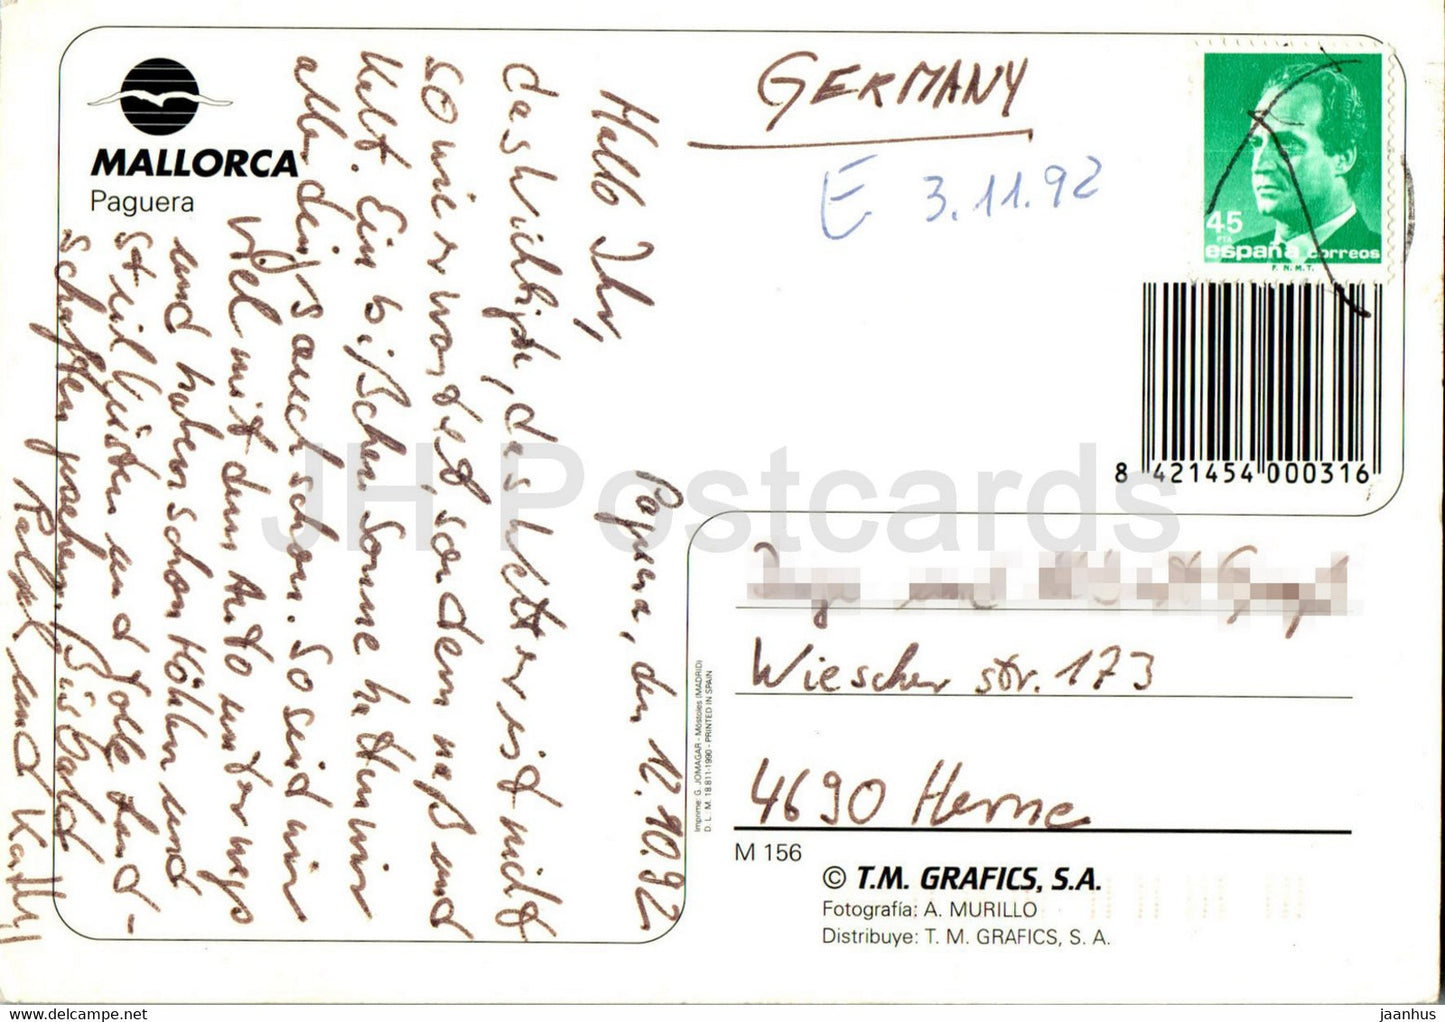 MALLORCA
Paguera
Paguera, den 12.10.92
Hallo Ihr,
das Wichtigste, das Wetter ist nicht
so wie erwartet, sondern naß und
kalt. Ein bißchen Sonne hatten wir
allerdings auch schon. So sind wir
viel mit dem Auto unterwegs
und haben schon Höhlen und
Steilküsten und tolle Land-
schaften gesehen. Bis bald
und Kathy
GERMANY
E 3.11.92
45
PTA
españa correos
F.N.M.T.
8 421454 000316
Wiescher str. 173
4690 Herne
M 156
© T.M. GRAFICS, S.A.
Fotografía: A. MURILLO
Distribuye: T. M. GRAFICS, S. A.
Imprime: G. JOMAGAR - Móstoles (MADRID)
D. L.: M. 18.811-1990 - PRINTED IN SPAIN
JH Postcards
www.jhpostcard.com
jaanhus